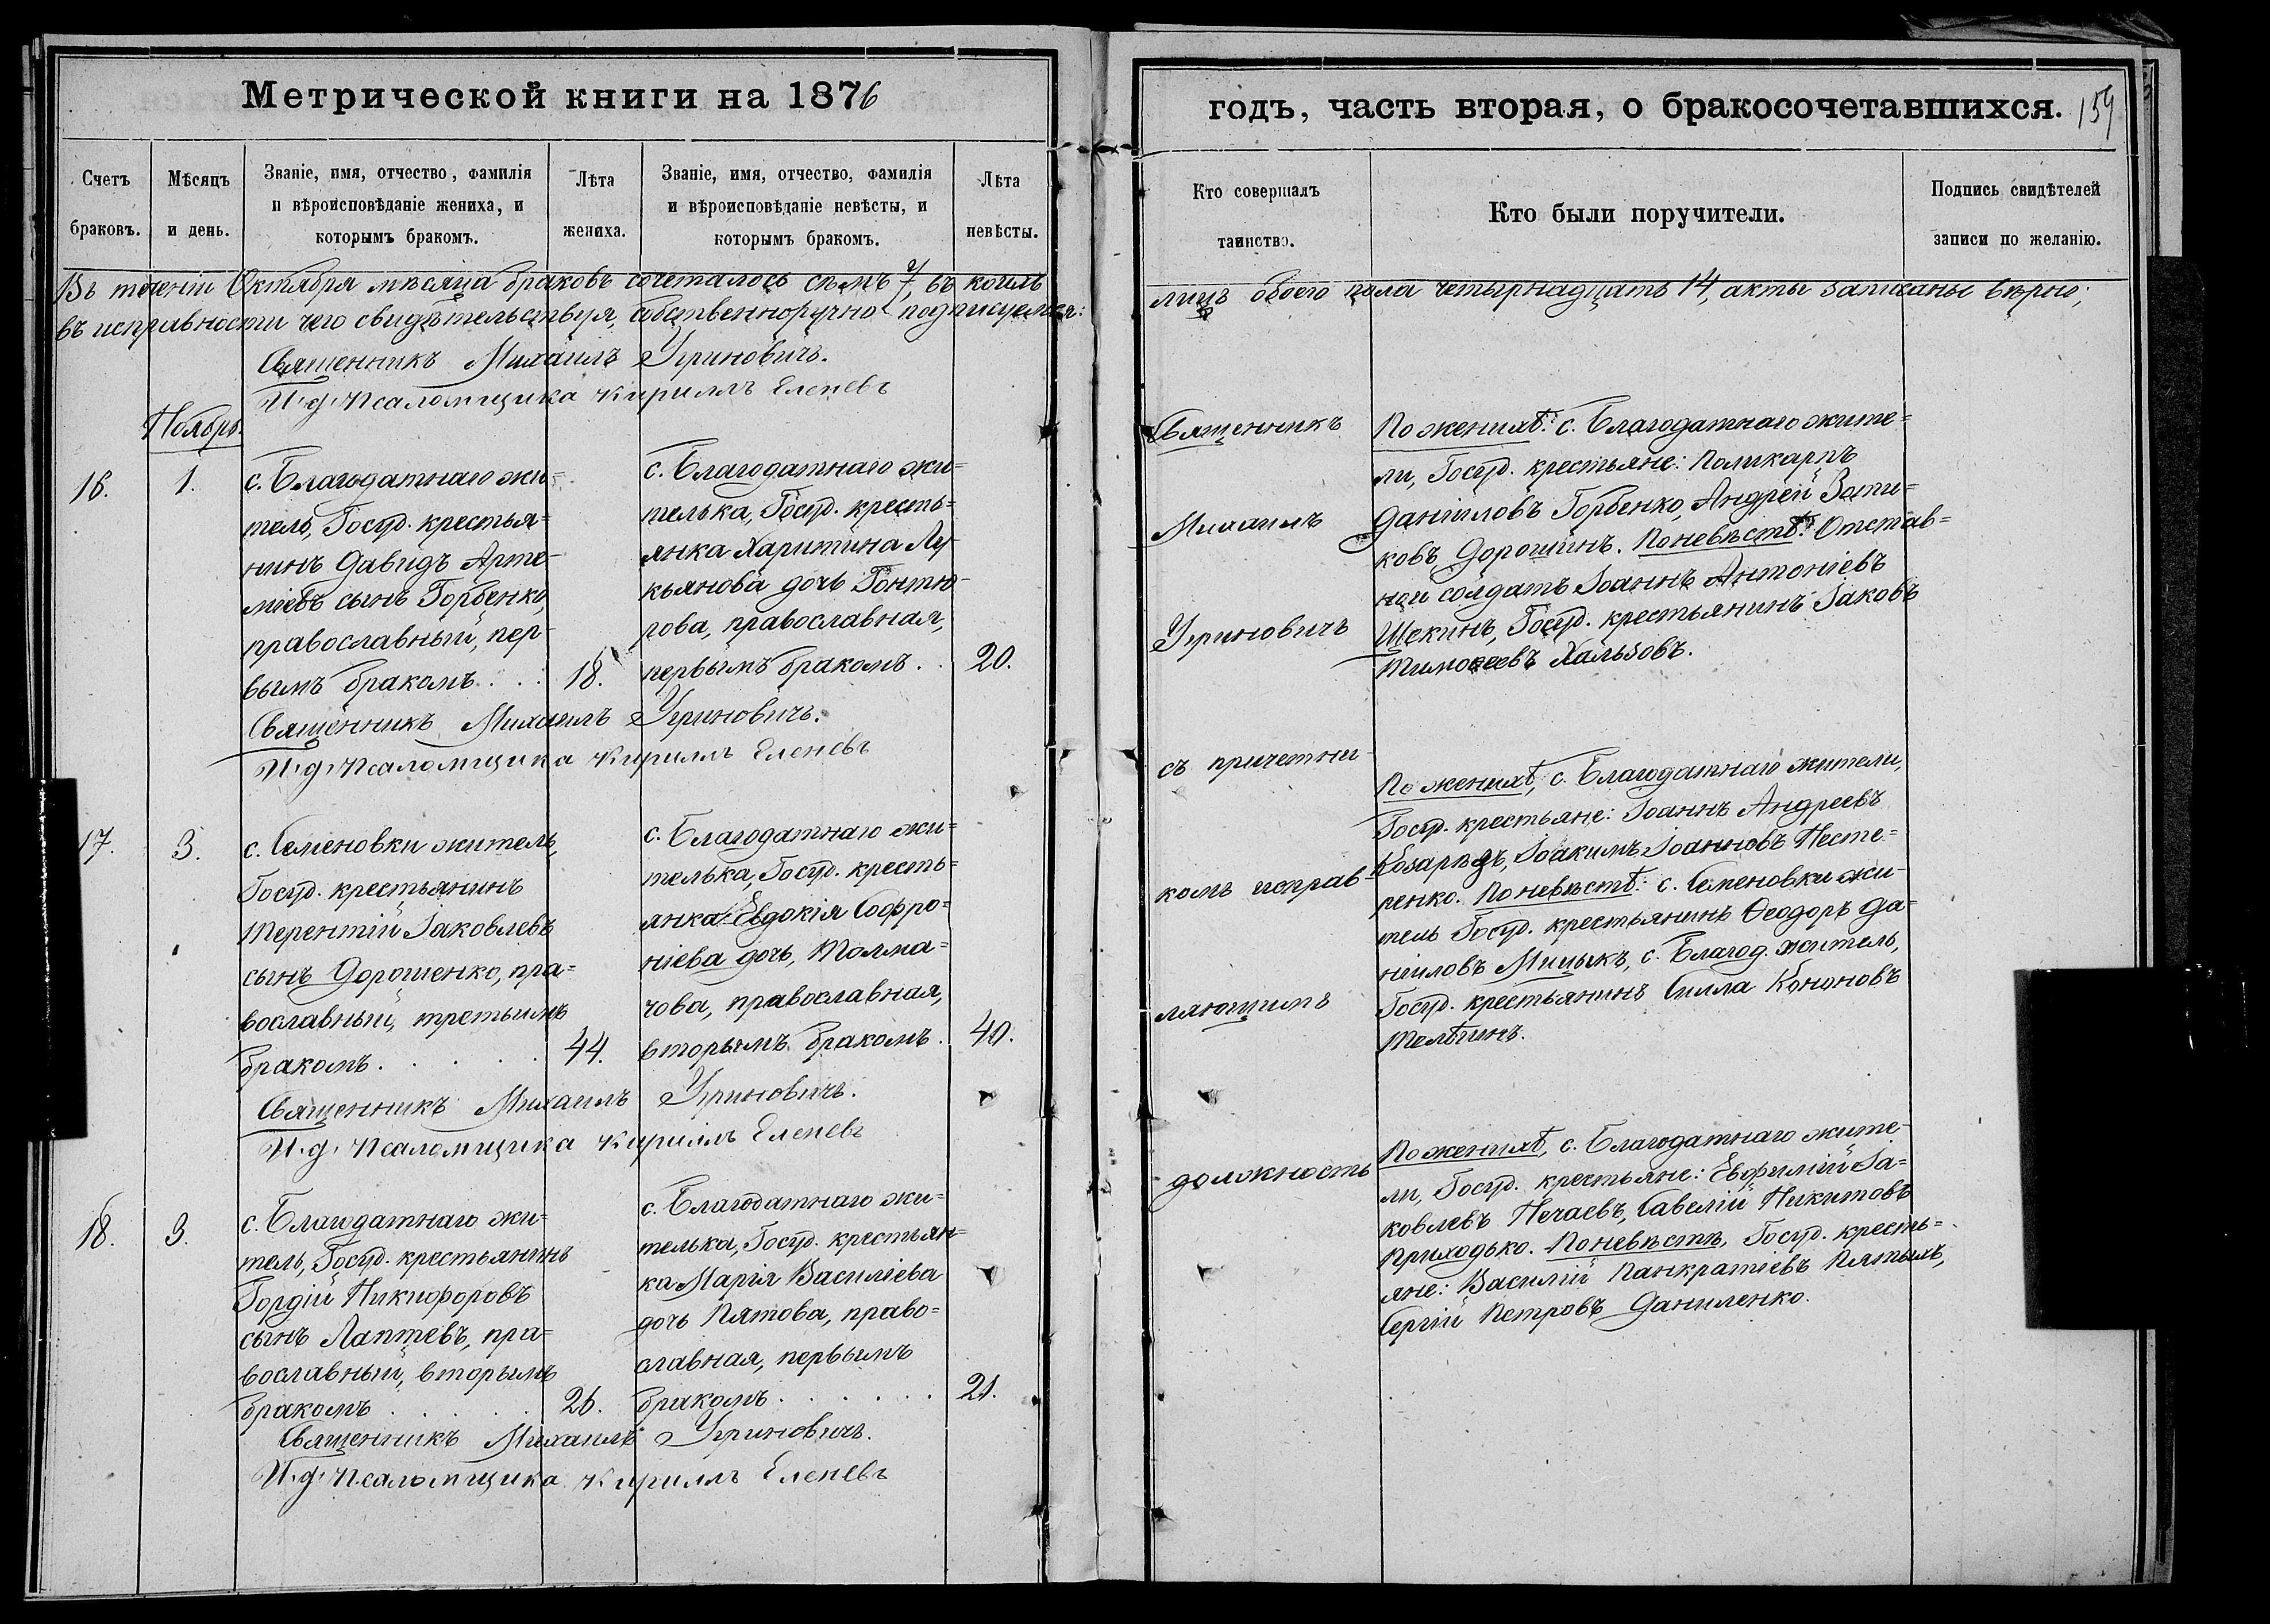 Метрической книги на 1876
Счетъ браковъ.
Мѣсяцъ и день.
Званіе, имя, отчество, фамилія
и вѣроисповѣданіе жениха, и
которымъ бракомъ.
Лѣта жениха.
Званіе, имя, отчество, фамилія
и вѣроисповѣданіе невѣсты, и
которымъ бракомъ.
Лѣта невѣсты.
Въ теченіи Октября мѣсяца браковъ сочеталось семь 7, въ коихъ
въ исправности чего свидѣтельствуя, собственноручно подписуемся:
Священникъ Михаилъ Угриновичъ.
И. д. Псаломщика Кириллъ Еленевъ
Ноябрь.
16.
1.
с. Благодатнаго жи=
тель, Госуд. крестья=
нинъ Давидъ Арте-
міевъ сынъ Горбенко,
православный, пер-
вымъ бракомъ . . . 18.
с. Благодатнаго жи=
телька, Госуд. кресть=
янка Харитина Лу-
кьянова дочь Гонтю-
рова, православная,
первымъ бракомъ . . 20.
Священникъ Михаилъ Угриновичъ.
И. д. Псаломщика Кириллъ Еленевъ
17.
3.
с. Семеновки житель,
Госуд. крестьянинъ
Терентій Іаковлевъ
сынъ Дорошенко, пра=
вославный, третьимъ
бракомъ . . . . 44.
с. Благодатнаго жи=
телька, Госуд. кресть=
янка Евдокія Софро=
ніева дочь, Толма=
чова, православная,
вторымъ бракомъ . 40.
Священникъ Михаилъ Угриновичъ.
И. д. Псаломщика Кириллъ Еленевъ
18.
3.
с. Благодатнаго жи=
тель, Госуд. крестьянинъ
Гордій Никифоровъ
сынъ Лаптевъ, пра=
вославный, вторымъ
бракомъ . . . . 26.
с. Благодатнаго жи=
телька, Госуд. крестьян=
ка Марія Василіева
дочь Пятова, право=
славная, первымъ
бракомъ . . . . . . 21.
Священникъ Михаилъ Угриновичъ.
И. д. Псаломщика Кириллъ Еленевъ
годъ, часть вторая, о бракосочетавшихся. 159
Кто совершалъ таинство.
Кто были поручители.
Подпись свидѣтелей записи по желанію.
лицъ обоего пола четырнадцать 14, акты записаны вѣрно;
Священникъ
Михаилъ
Угриновичъ
съ причетни-
комъ исправ-
ляющимъ
должность
По женихѣ: с. Благодатнаго жите=
ли, Госуд. крестьяне: Поликарпъ
Даніиловъ Горбенко, Андрей Золи=
ковъ Дорошинъ. По невѣстѣ: Отстав=
ной солдатъ Іоаннъ Антоніевъ
Щекинъ, Госуд. крестьянинъ Іаковъ
Тимоѳеевъ Хальзовъ.
По женихѣ, с. Благодатнаго жители,
Госуд. крестьяне: Іоаннъ Андреевъ
Козарѣзъ, Іоакимъ Іоанновъ Несте=
ренко. По невѣстѣ: с. Семеновки жи-
тель Госуд. крестьянинъ Ѳеодоръ Да=
ніиловъ Мицыкъ, с. Благод. житель,
Госуд. крестьянинъ Силла Кононовъ
По женихѣ, с. Благодатнаго жите-
ли, Госуд. крестьяне: Евфимій Іа=
ковлевъ Нечаевъ, Савелій Никитовъ
Приходько. По невѣстѣ, Госуд. кресть=
яне: Василій Панкратіевъ Пятыхъ,
Сергій Петровъ Даниленко.